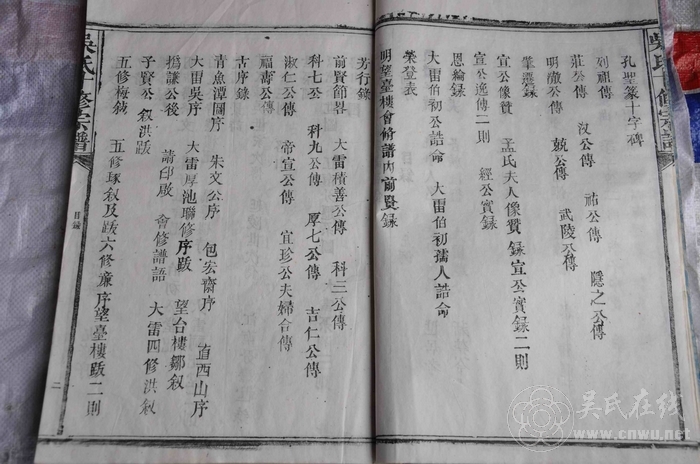 孔聖篆十字碑
列祖傳
莊公傳 汲公傳 祐公傳 隱之公傳
明徹公傳 兢公傳 武陵公傳
肇遷錄
宣公像贊 孟氏夫人像贊 錄宣公實錄二則
宣公逸傳二則 經公實錄
恩綸錄
大雷伯初公誥命 大雷伯初孺人誥命
榮登表
明望臺樓會脩譜內前賢錄
芳行錄
前賢節畧 大雷積善公傳 科三公傳
科七公 科九公傳 厚七公傳 吉仁公傳
淑仁公傳 帝宣公傳 宜珍公夫婦合傳
福壽公傳
古序錄
青魚潭圖序 朱文公序 包宏齋序 直西山序
大雷吳序 大雷厚池聯修序跋 望台樓鄒敘
撝謙公後 請印啟 會修譜語 大雷四修洪敘
子賢公 敘洪跋
五修梅 五修琢敘及跋六修濂序望臺樓跋二則
吳氏 修宗譜
目錄
二
吳氏在线
www.cnwu.net